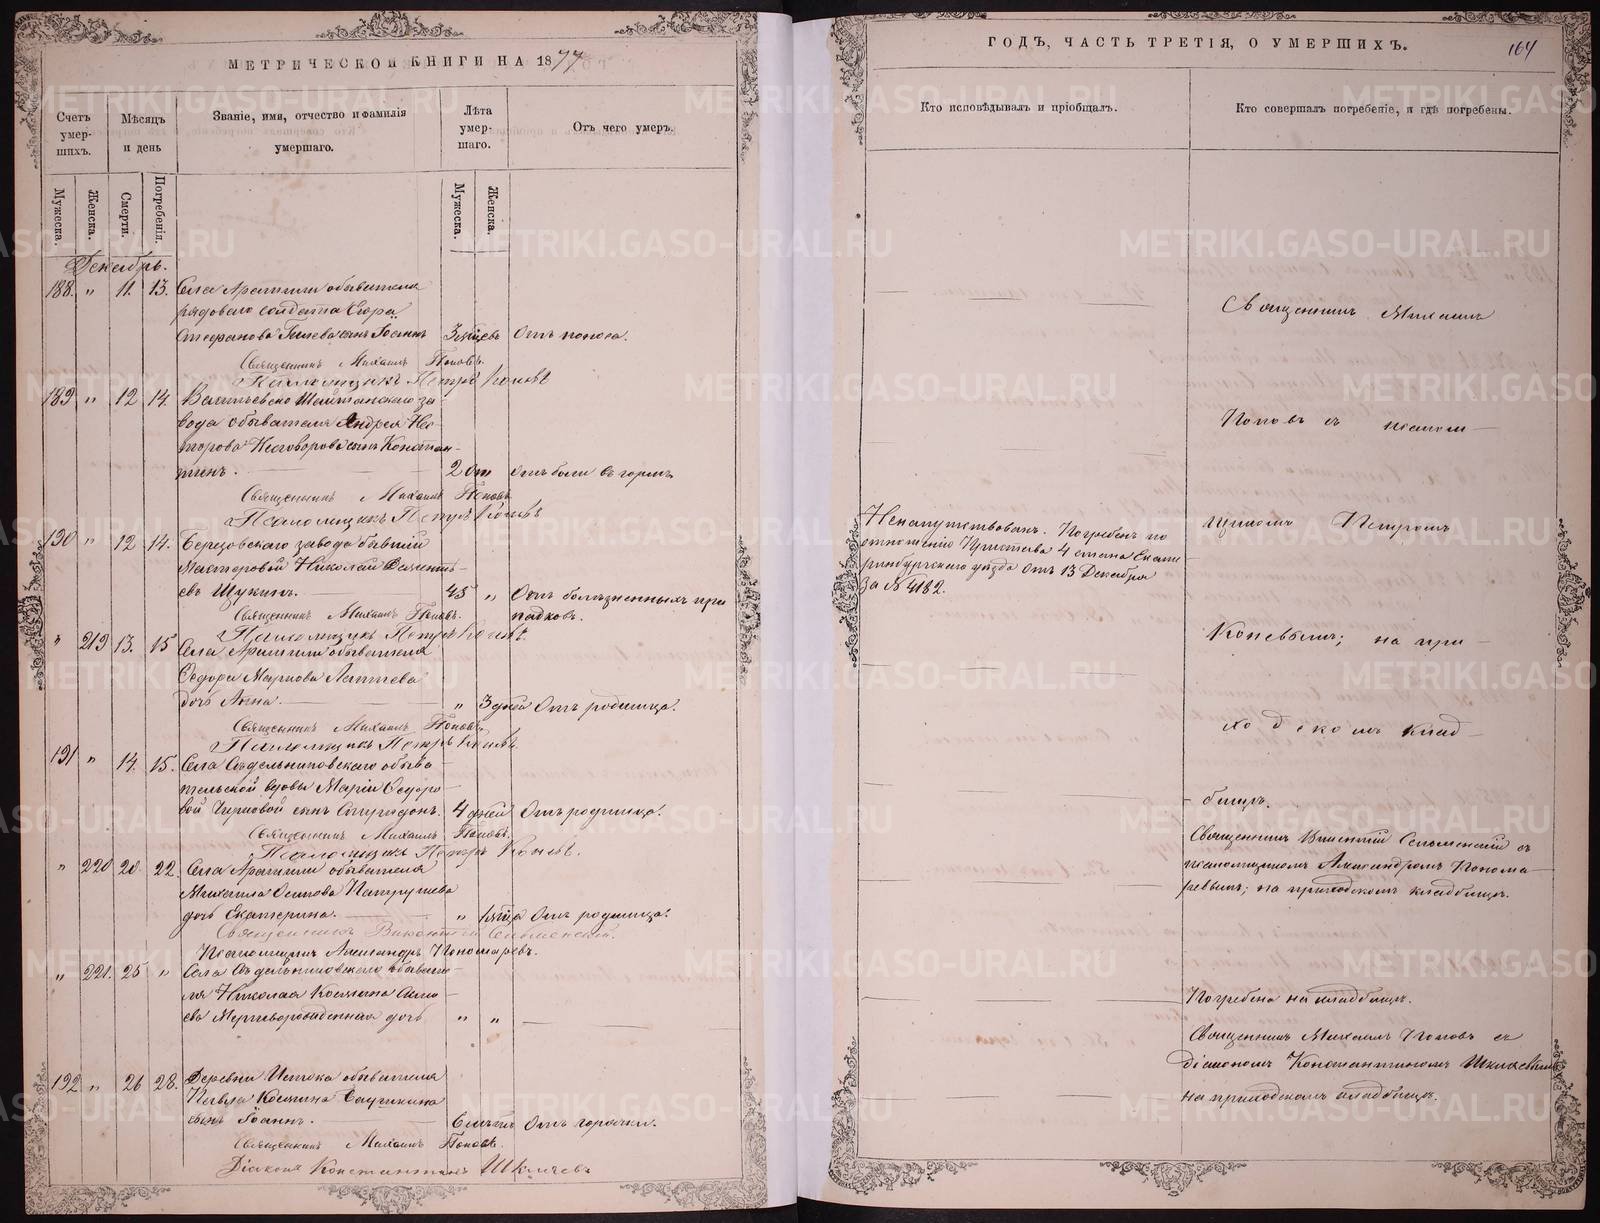 МЕТРИЧЕСКОЙ КНИГИ НА 1877
Счетъ умерших.
Мѣсяцъ и день
Званіе, имя, отчество и фамилія умершаго.
Лѣта умершаго.
Отъ чего умеръ.
Мужеска.
Женска.
Смерти.
Погребенія.
Мужеска.
Женска.
Декабрь.
188. " 11. 13. Села Арамили обывателя
рядоваго солдата Егора
Стефанова сынъ Іоаннъ 3 мѣсцевъ Отъ поноса.
Священникъ Михаилъ Поповъ.
Псаломщикъ Петръ Коневъ
189 " 12 14. Шайтанскаго за-
вода обывателя Андрея Нес-
торова сынъ Констан-
тинъ. 2 лѣт Отъ боли въ горлѣ
Священникъ Михаилъ Поповъ
Псаломщикъ Петръ Коневъ
190 " 12 14. Березовскаго завода бывшій
Мастеровой Николай
евъ Щукинъ. 45 " Отъ болѣзненныхъ при
падковъ.
Священникъ Михаилъ Поповъ.
Псаломщикъ Петръ Коневъ.
" 219 13. 15 Села Арамили обывателя
Ѳедора Маркова Лаптева
дочь Анна. " 3 дней Отъ родимца.
Священникъ Михаилъ Поповъ.
Псаломщикъ Петръ Коневъ.
191 " 14. 15. Села Сѣдельниковскаго обыва-
тельской вдовы Маріи Ѳедоро-
вой сынъ Спиридонъ. 4 дней Отъ родимца.
Священникъ Михаилъ Поповъ.
Псаломщикъ Петръ Коневъ.
" 220 20 22. Села Арамили обывателя
Михаила Осипова Патрушева
дочь Екатерина. " Отъ родимца.
Священникъ Викентій
Псаломщикъ Александръ Пономаревъ.
" 221. 25 " Села Сѣдельниковскаго обывате-
ля Николая Козмина
ева Мертворожденная дочь " "
192 " 26 28. Деревни Истока обывателя
Павла Козмина
сынъ Іоаннъ. Отъ горячки.
Священникъ Михаилъ Поповъ.
Діаконъ Константинъ Шкляевъ
ГОДЪ, ЧАСТЬ ТРЕТІЯ, О УМЕРШИХЪ.
164
Кто исповѣдывалъ и пріобщалъ.
Кто совершалъ погребеніе, и гдѣ погребены.
Священникъ Михаилъ
Поповъ съ псалом-
щикомъ Петромъ
Ненапутствованъ. Погребенъ по
отношенію Пристава 4 стана Екате
ринбургскаго уѣзда отъ 13 Декабря
за № 4182.
Коневымъ; на при-
ходскомъ клад-
бищѣ.
Священникъ Викентій съ
псаломщикомъ Александромъ Понома
ревымъ; на приходскомъ кладбищѣ.
Погребена на кладбищѣ.
Священникъ Михаилъ Поповъ съ
діакономъ Константиномъ Шкляевымъ
на приходскомъ кладбищѣ.
METRIKI.GASO-URAL.RU